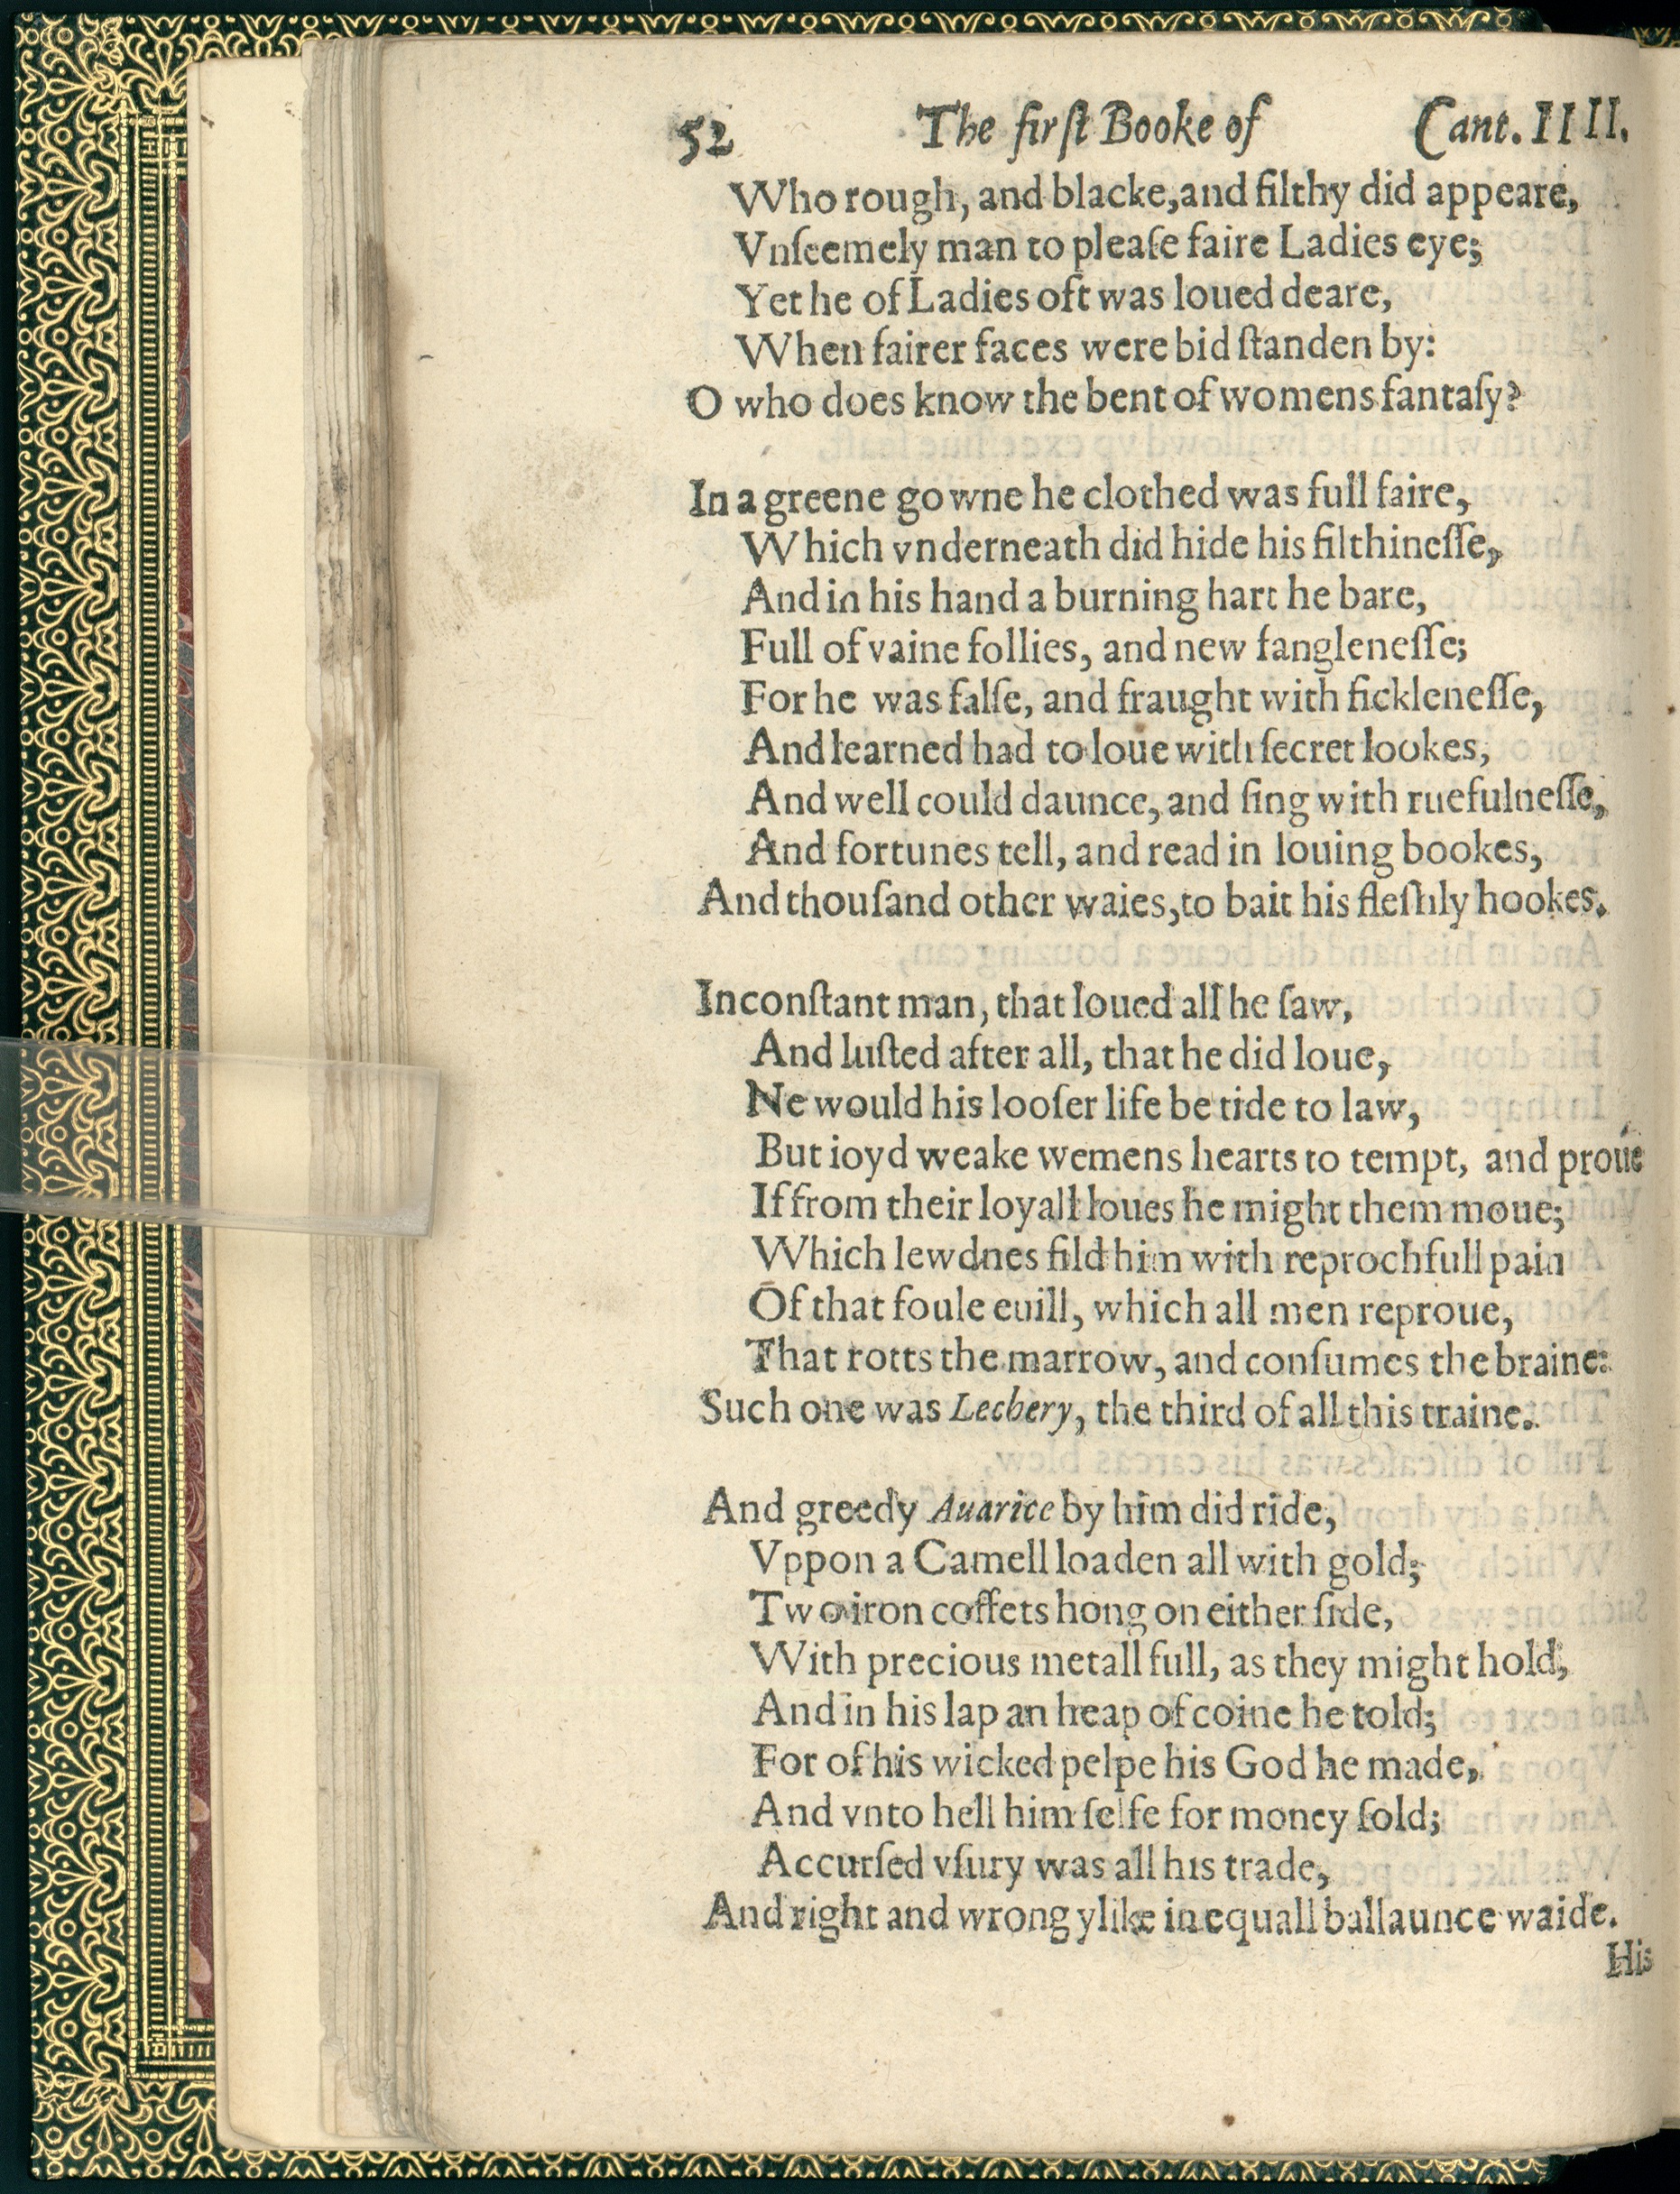 52 The firſt Booke of Cant. IIII.
Who rough, and blacke, and filthy did appeare,
Vnſeemely man to pleaſe faire Ladies eye;
Yet he of Ladies oft was loued deare,
When fairer faces were bid ſtanden by:
O who does know the bent of womens fantaſy?
In a greene gowne he clothed was full faire,
Which vnderneath did hide his filthineſſe,
And in his hand a burning hart he bare,
Full of vaine follies, and new fangleneſſe;
For he was falſe, and fraught with fickleneſſe,
And learned had to loue with ſecret lookes,
And well could daunce, and ſing with ruefulneſſe,
And fortunes tell, and read in louing bookes,
And thouſand other waies, to bait his fleſhly hookes.
Inconſtant man, that loued all he ſaw,
And luſted after all, that he did loue,
Ne would his looſer life be tide to law,
But ioyd weake wemens hearts to tempt, and proue
If from their loyall loues he might them moue;
Which lewdnes fild him with reprochfull pain
Of that foule euill, which all men reproue,
That rotts the marrow, and conſumes the braine:
Such one was Lechery, the third of all this traine.
And greedy Auarice by him did ride,
Vppon a Camell loaden all with gold;
Two iron coffers hong on either ſide,
With precious metall full, as they might hold,
And in his lap an heap of coine he told;
For of his wicked pelpe his God he made,
And vnto hell him ſelfe for money ſold;
Accurſed vſury was all his trade,
And right and wrong ylike in equall ballaunce waide.
His